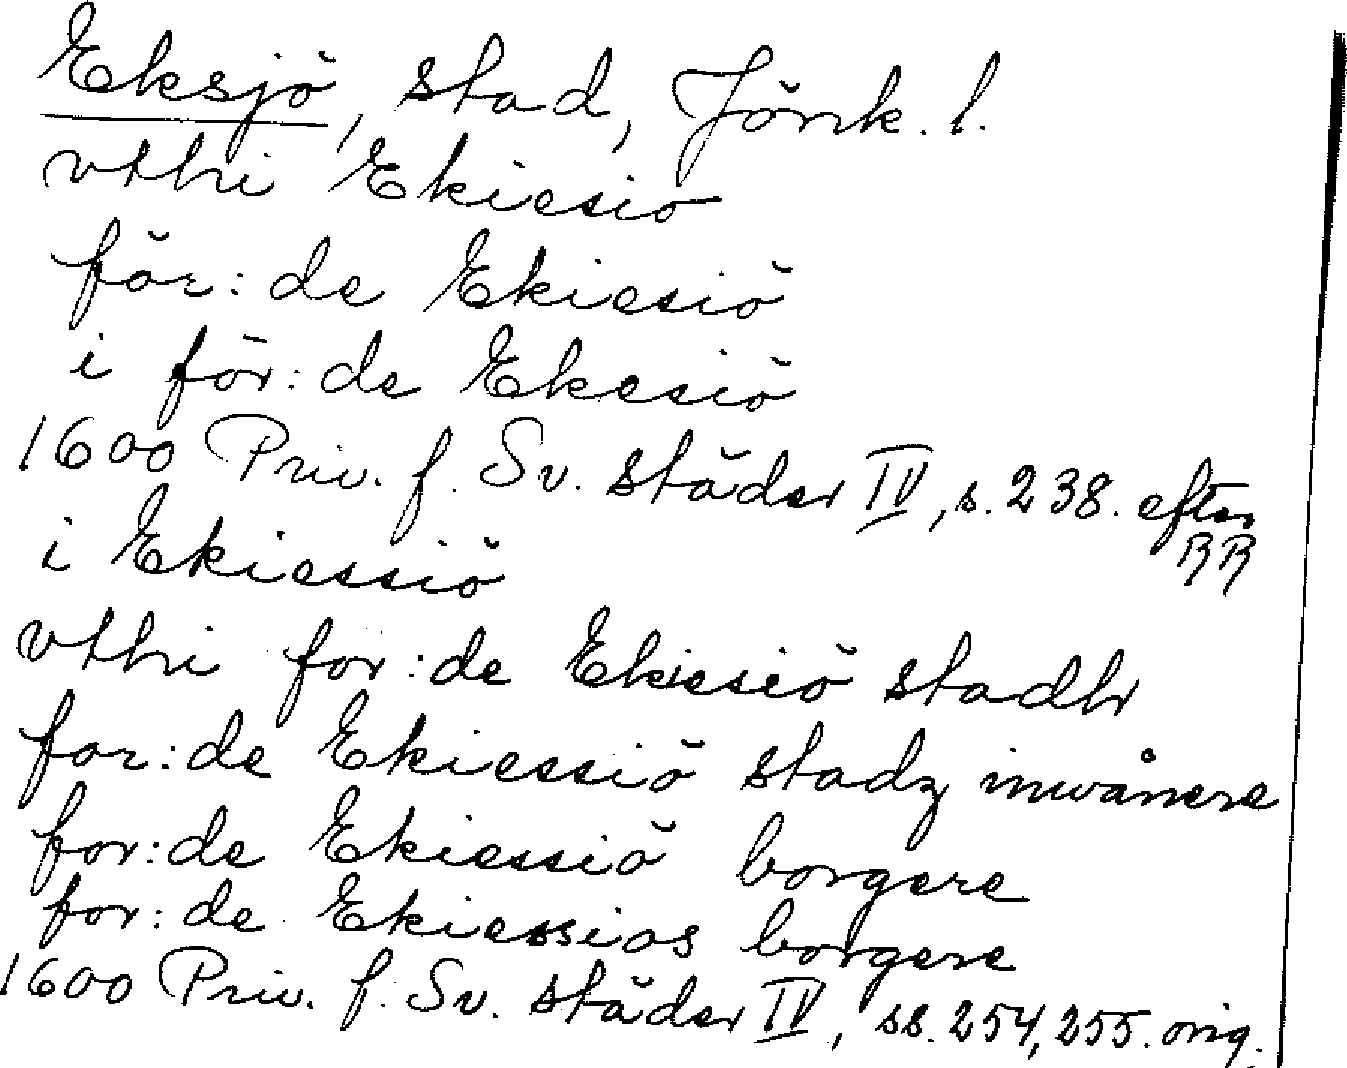 Eksjö, stad, Jönk. l.
vthi Ekiesio
för:de Ekiesiö
i för:de Ekesiö
1600 Priv. f. Sv. städer IV, s. 238. efter
RR
i Ekiessiö
vthi for:de Ekiesiö stadh
for:de Ekiessiö stadz inwånere
for:de Ekiessiö borgere
for:de Ekiessios borgere
1600 Priv. f. Sv. städer IV, ss. 254, 255. orig.